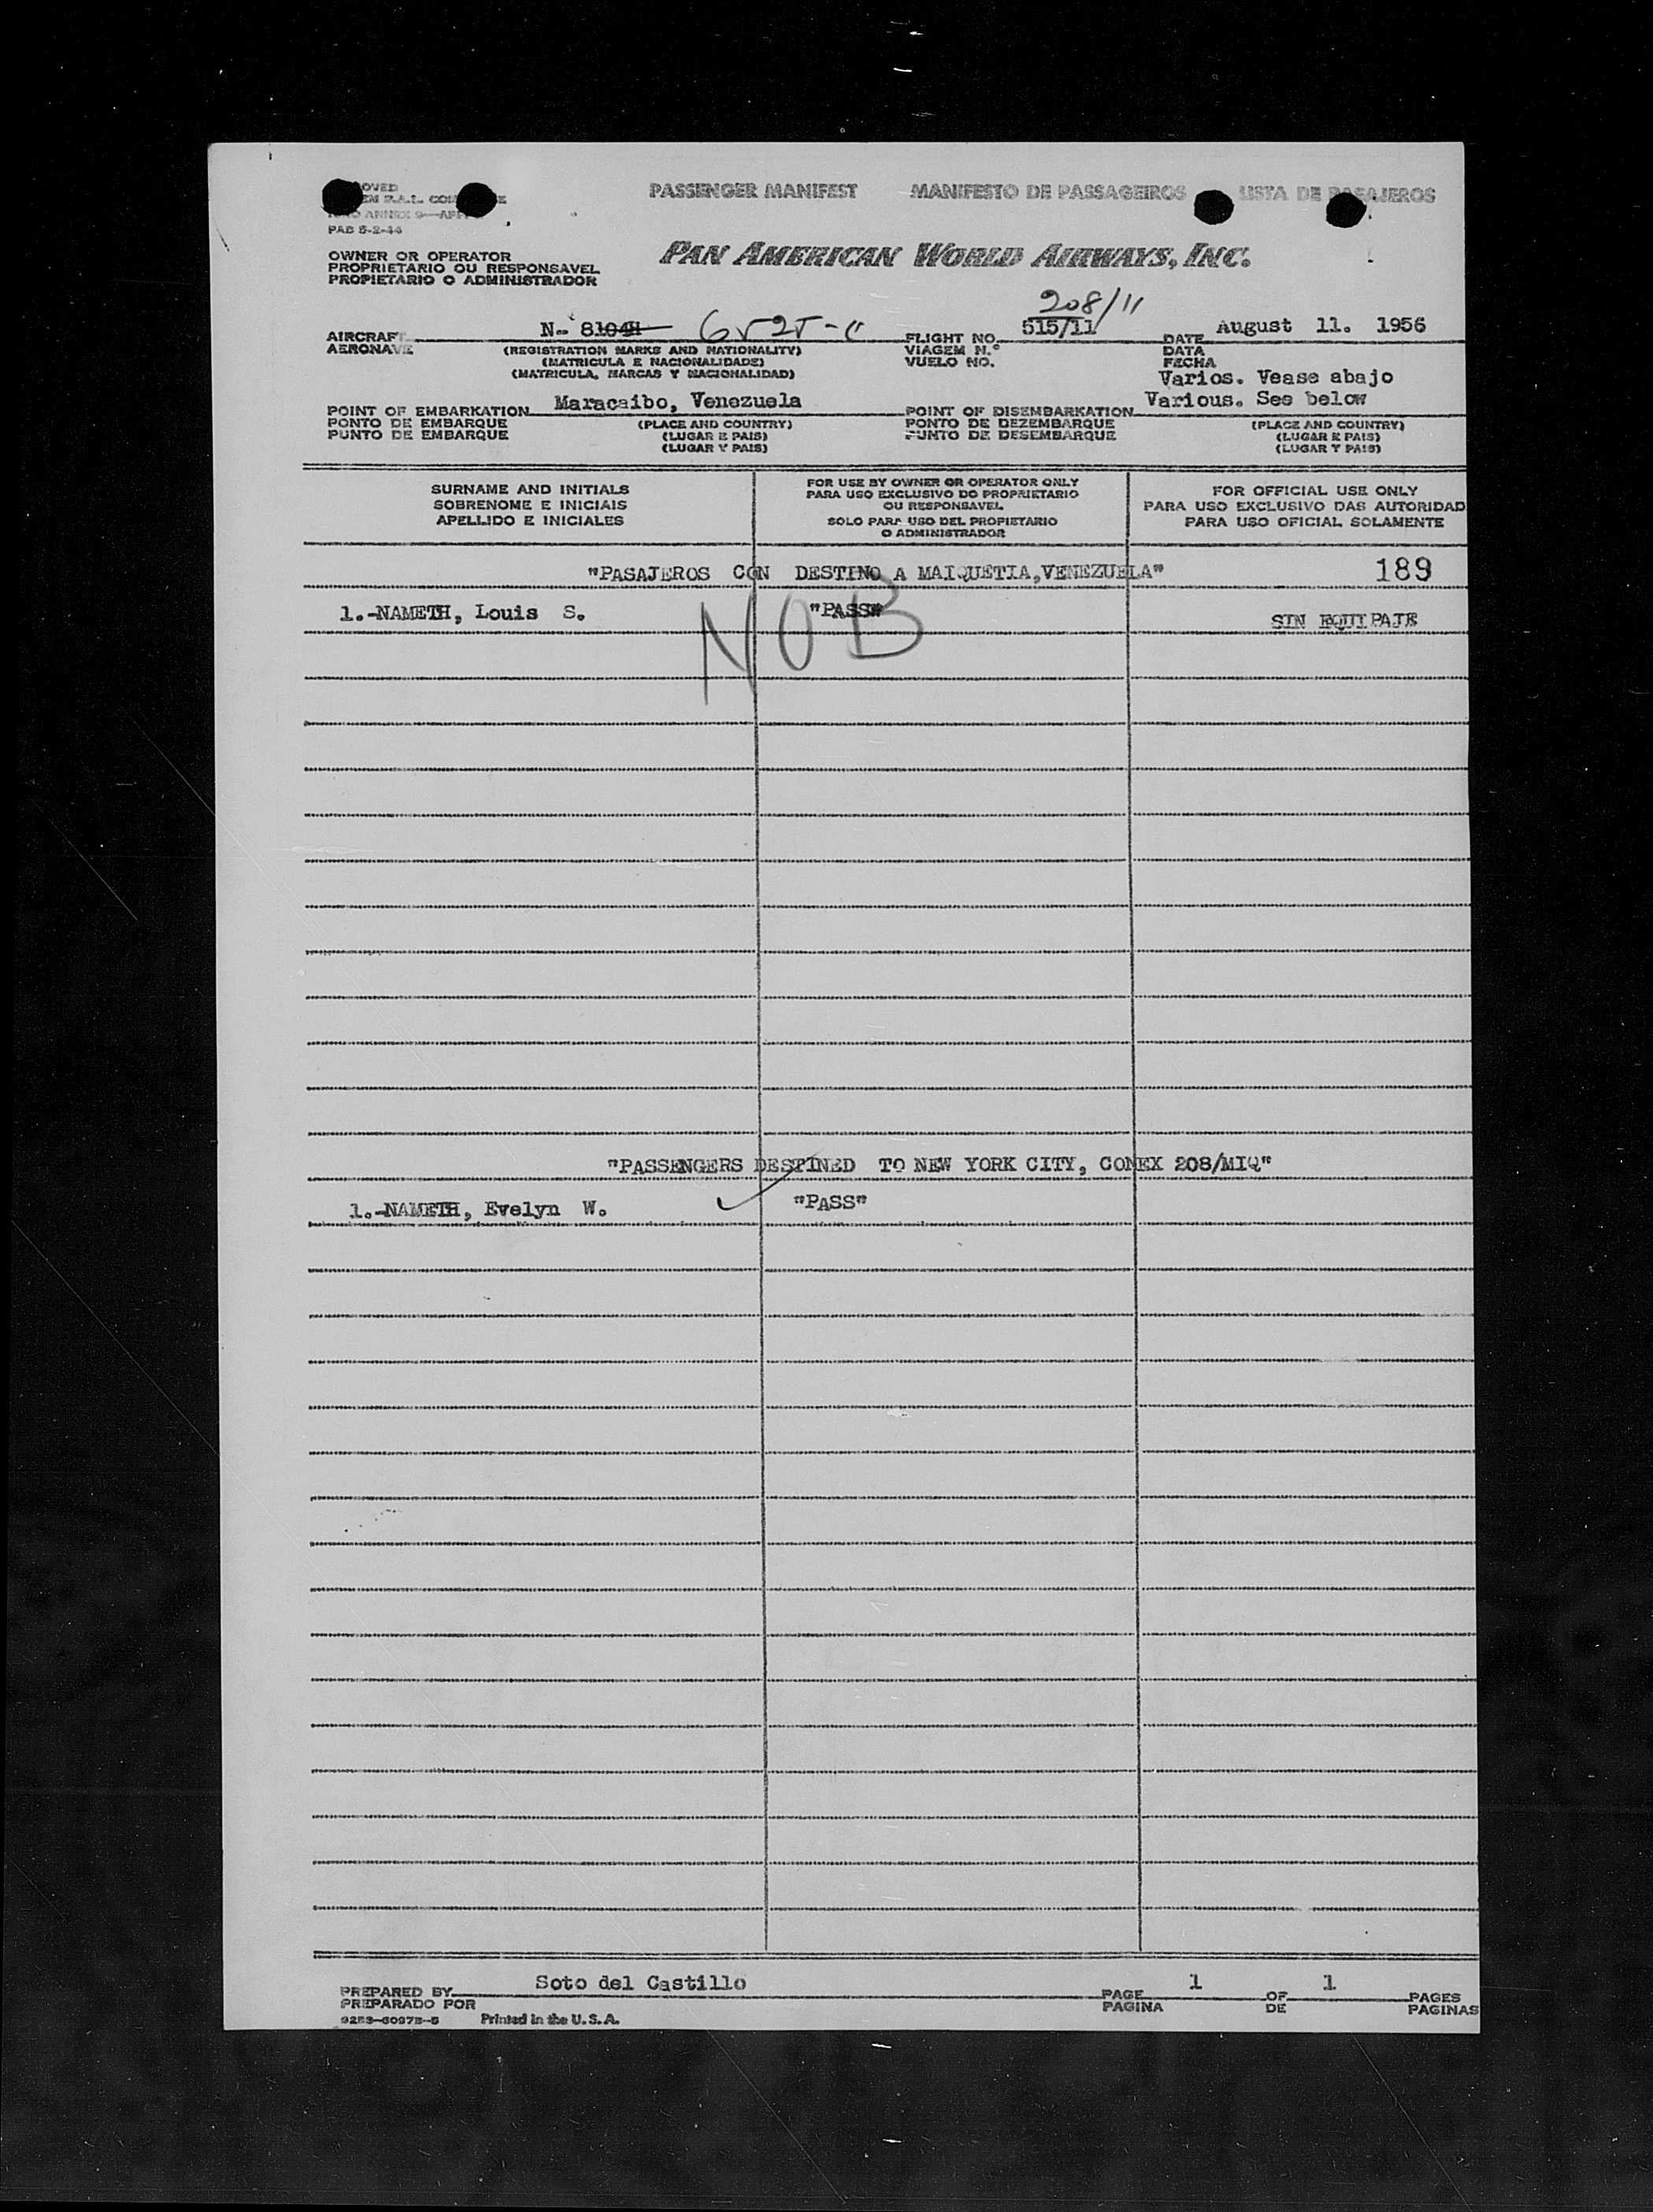 PASSENGER MANIFEST MANIFESTO DE PASSAGEIROS LISTA DE PASAJEROS
PAB 5-2-44
OWNER OR OPERATOR
PROPRIETARIO OU RESPONSAVEL
PROPIETARIO O ADMINISTRADOR
PAN AMERICAN WORLD AIRWAYS, INC.
208/11
AIRCRAFT N- 8104H 6525-C FLIGHT NO. 515/11 DATE August 11. 1956
AERONAVE (REGISTRATION MARKS AND NATIONALITY) VIAGEM N.º DATA
(MATRICULA E NACIONALIDADE) VUELO NO. FECHA
(MATRICULA, MARCAS Y NACIONALIDAD) Varios. Vease abajo
POINT OF EMBARKATION Maracaibo, Venezuela POINT OF DISEMBARKATION Various. See below
PONTO DE EMBARQUE (PLACE AND COUNTRY) PONTO DE DEZEMBARQUE (PLACE AND COUNTRY)
PUNTO DE EMBARQUE (LUGAR E PAIS) PUNTO DE DESEMBARQUE (LUGAR E PAIS)
(LUGAR Y PAIS) (LUGAR Y PAIS)
SURNAME AND INITIALS
SOBRENOME E INICIAIS
APELLIDO E INICIALES
FOR USE BY OWNER OR OPERATOR ONLY
PARA USO EXCLUSIVO DO PROPRIETARIO
OU RESPONSAVEL
SOLO PARA USO DEL PROPIETARIO
O ADMINISTRADOR
FOR OFFICIAL USE ONLY
PARA USO EXCLUSIVO DAS AUTORIDAD
PARA USO OFICIAL SOLAMENTE
"PASAJEROS CON DESTINO A MAIQUETIA,VENEZUELA" 189
1.-NAMETH, Louis S. "PASS" SIN EQUIPAJE
NOB
"PASSENGERS DESTINED TO NEW YORK CITY, CONEX 208/MIQ"
1.-NAMETH, Evelyn W. "PASS"
PREPARED BY Soto del Castillo PAGE 1 OF 1 PAGES
PREPARADO POR PAGINA DE PAGINAS
Printed in the U.S.A.